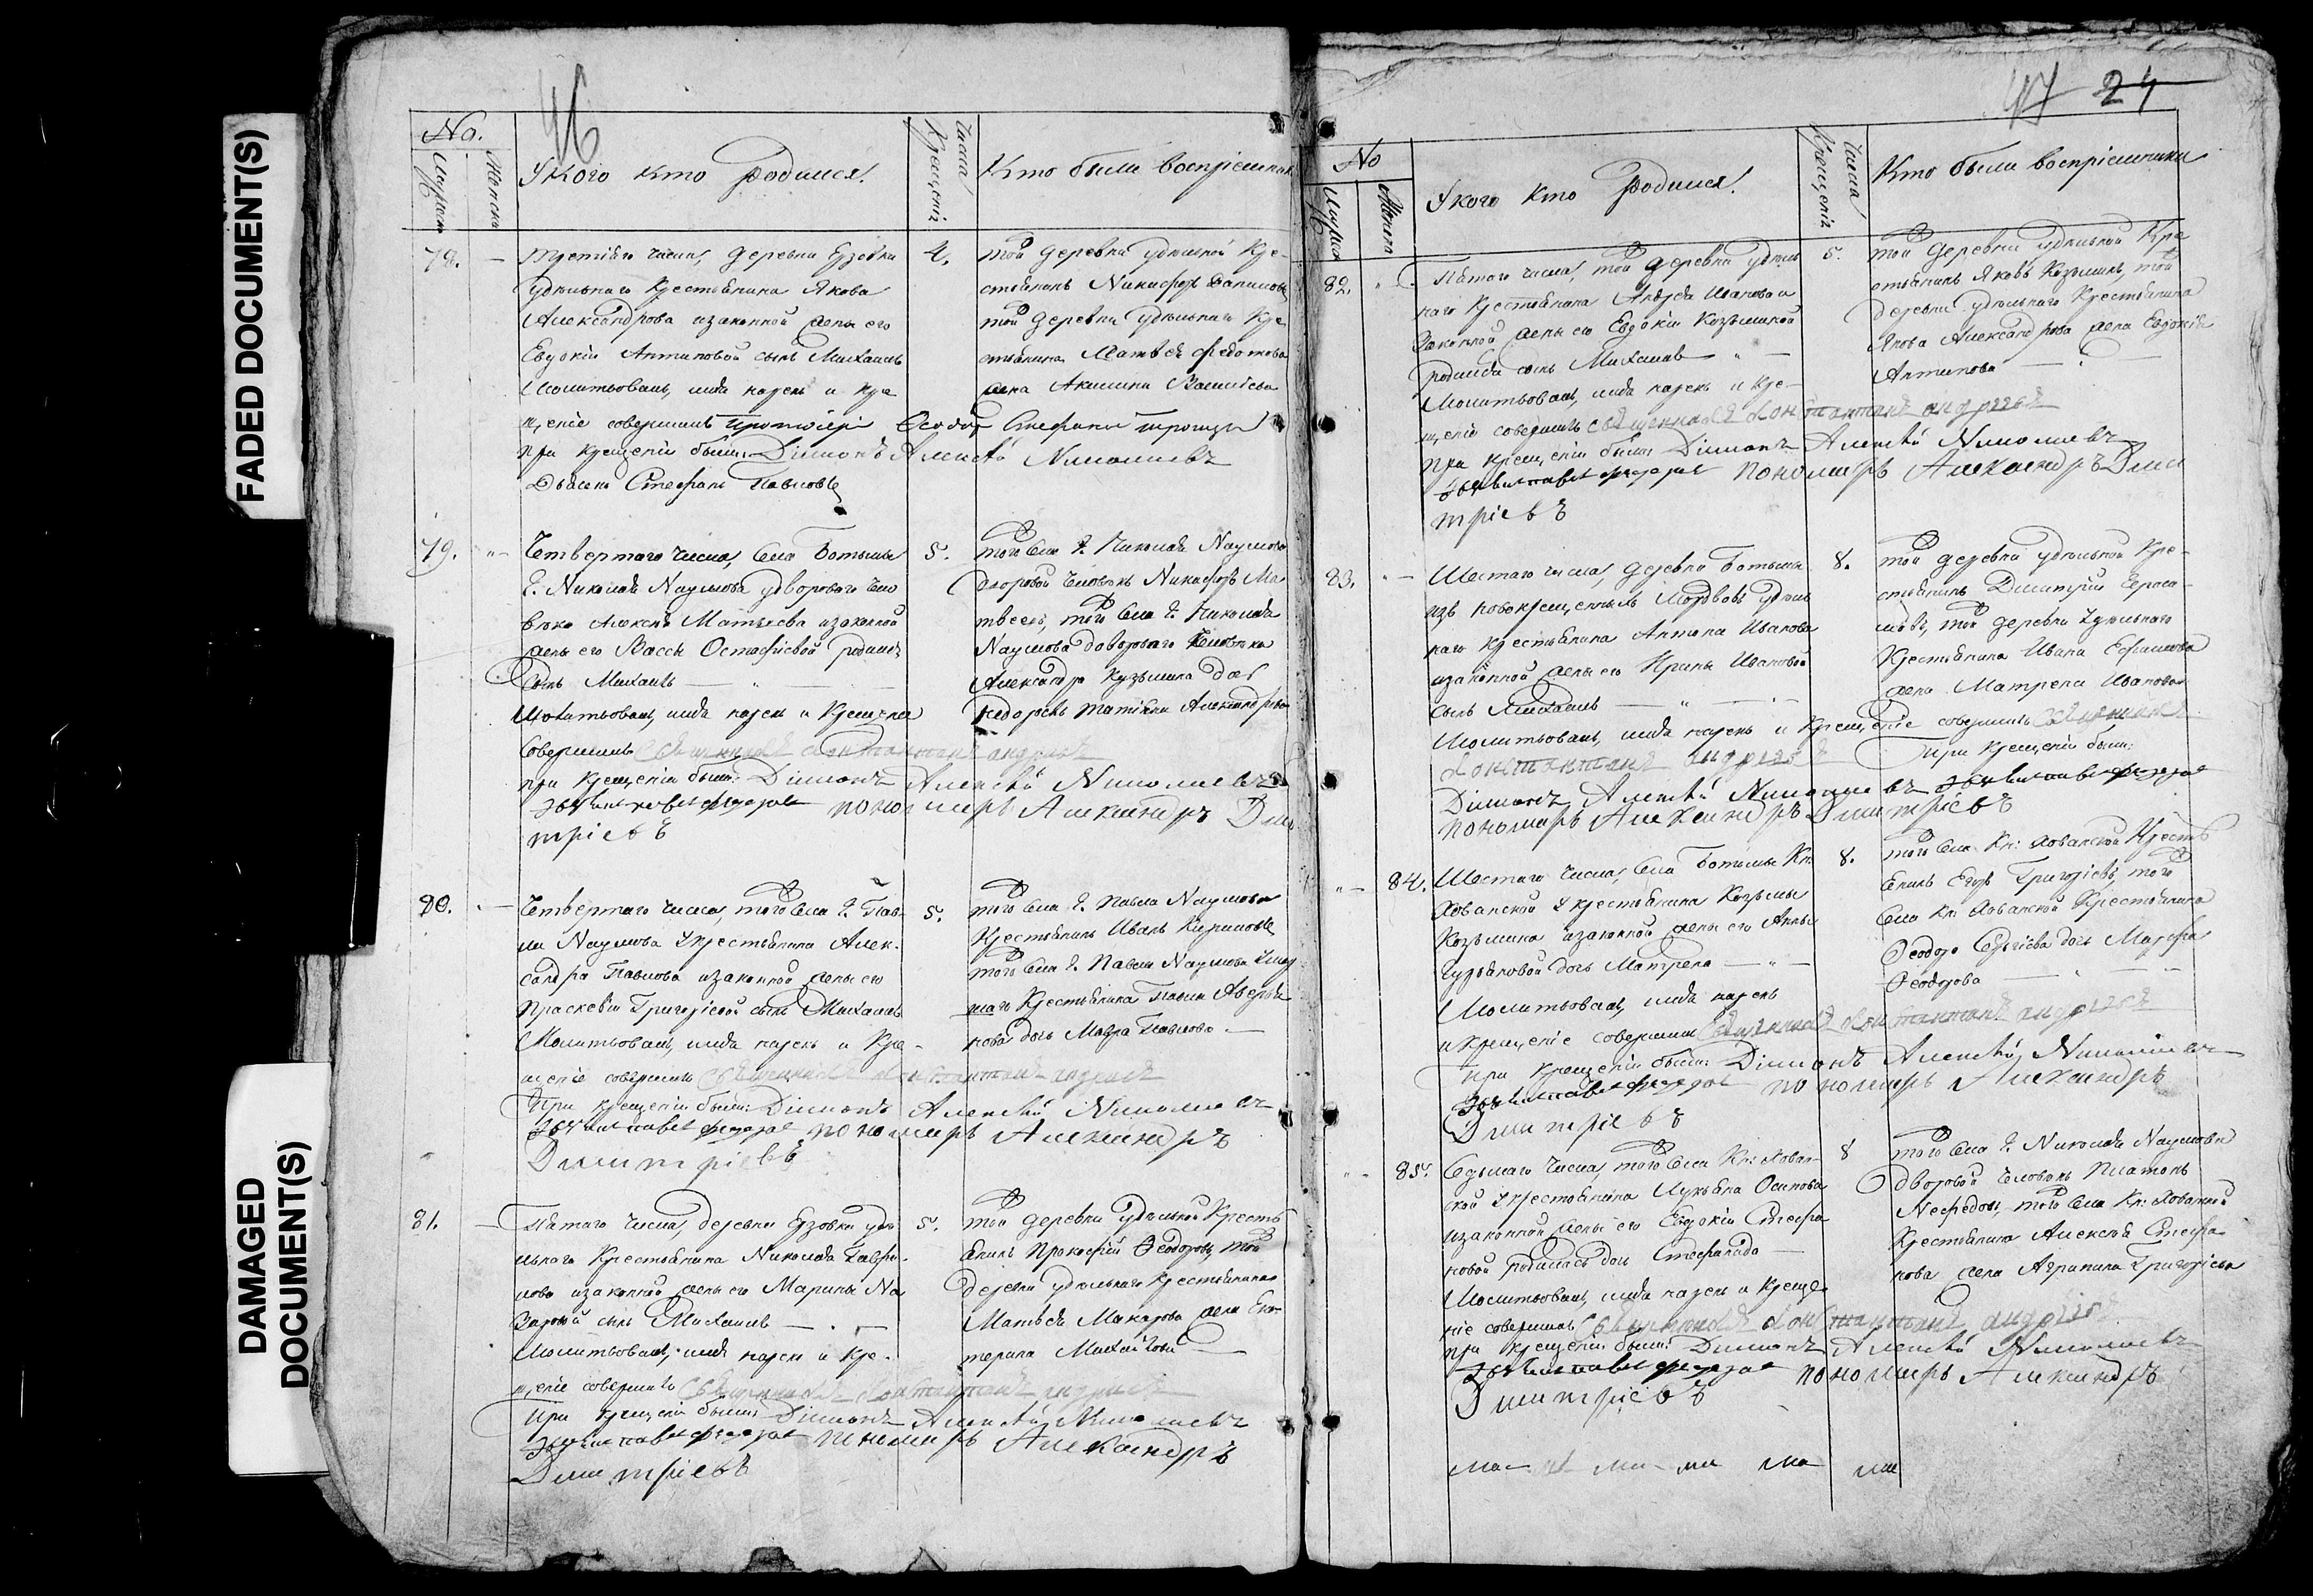 FADED DOCUMENT(S)
DAMAGED
DOCUMENT(S)
46
No.
Мужеск
Женска
У кого кто родился.
Числа
Крещенія
Кто были воспріемники
78.
третьяго числа, деревни Ерзовки
удѣльнаго крестьянина Якова
Александрова и законной жены его
Евдокіи Антиповой сынъ Михаилъ
Молитвовалъ, имя нарекъ и кре
щеніе совершилъ протоіерей Стефанъ
при крещеніи были: Діаконъ Алексѣй Николаевъ
Дьячекъ Стефанъ Павловъ
4.
той деревни удѣльной кре-
стьянинъ Никифоръ Даниловъ
той деревни удѣльнаго кре
стьянина Матвѣя Федотова
жена Акилина Васильева
79.
Четвертаго числа, села Ботьмы
Г. Николая Наумова у двороваго чело
вѣка Алексѣя Матвеева и законной
жены его Вассы Остафіевой родился
сынъ Михаилъ
Молитвовалъ, имя нарекъ и крещеніе
совершилъ священникъ Константинъ Андреевъ
при крещеніи были: Діаконъ Алексѣй Николаевъ
пономарь Александръ Дми
тріевъ
5.
того села Г. Николая Наумова
дворовой человѣкъ Никифоръ Ма
твеевъ, того села Г. Николая
Наумова двороваго человѣка
Александра Кузьмина
Татіана Александрова
80.
Четвертаго числа, того села Г. Пав-
ла Наумова у крестьянина Алек-
сандра Павлова и законной жены его
Прасковіи Григорьевой сынъ Михаилъ
Молитвовалъ, имя нарекъ и кре-
щеніе совершилъ священникъ Константинъ Андреевъ
При крещеніи были: Діаконъ Алексѣй Николаевъ
пономарь Александръ
Димитріевъ
5.
того села Г. Павла Наумова
крестьянинъ Иванъ Кириловъ
того села Г. Павла Наумова
крестьянина Павла Аверья
нова дочь Мавра Павлова
81.
Пятаго числа, деревни Ерзовки удѣ
льнаго крестьянина Николая Гаври-
лова и законной жены его Марины На
заровой сынъ Михаилъ
Молитвовалъ, имя нарекъ и кре-
щеніе совершилъ священникъ Константинъ Андреевъ
При крещеніи были: Діаконъ Алексѣй Николаевъ
пономарь Александръ
Димитріевъ
5.
той деревни удѣльной кресть
янинъ Прокофій Ѳеодоровъ, той
деревни удѣльнаго крестьянина
Матвѣя Макарова жена Ека
терина Михайлова
47 24
No
Мужеск
Женска
У кого кто родился.
Числа
Крещенія
Кто были воспріемники
82.
Пятаго числа, той деревни удѣль
наго крестьянина Андрея Иванова и
законной жены его Евдокіи Козьминой
родился сынъ Михаилъ
Молитвовалъ, имя нарекъ и кре-
щеніе совершилъ священникъ Константинъ Андреевъ
при крещеніи были: Діаконъ Алексѣй Николаевъ
пономарь Александръ Дими
тріевъ
5.
той деревни удѣльной кре
стьянинъ Яковъ Козьминъ, той
деревни удѣльнаго крестьянина
Якова Александрова жена Евдокія
Антипова
83.
Шестаго числа, деревни Ботьмы
изъ новокрещенныхъ мордовъ удѣль
наго крестьянина Антона Иванова
и законной жены его Ирины Ивановой
сынъ Михаилъ
Молитвовалъ, имя нарекъ и крещеніе совершилъ священникъ
Константинъ Андреевъ При крещеніи были:
Діаконъ Алексѣй Николаевъ
пономарь Александръ Димитріевъ
8.
той деревни удѣльной кре-
стьянинъ Димитрій Гераси-
мовъ, той деревни удѣльнаго
крестьянина Ивана Ефимова
жена Матрена Иванова
84.
Шестаго числа, села Ботьмы Кн:
Хованской у крестьянина Козьмы
Козьмина и законной жены его Анны
дочь Матрена
Молитвовалъ, имя нарекъ
и крещеніе совершилъ священникъ Константинъ Андреевъ
При крещеніи были: Діаконъ Алексѣй Николаевъ
пономарь Александръ
Димитріевъ
8.
того села Кн: Хованской кресть
янинъ Егоръ Григорьевъ, того
села Кн: Хованской крестьянина
Ѳеодора Сергіева дочь Марфа
Ѳеодорова
85.
Седьмаго числа, того села Кн: Хован-
ской у крестьянина Лукьяна Осипова
и законной жены его Евдокіи Стефа
новой родилась дочь Стефанида
Молитвовалъ, имя нарекъ и креще
ніе совершилъ священникъ Константинъ Андреевъ
при крещеніи были: Діаконъ Алексѣй Николаевъ
пономарь Александръ
Димитріевъ
8
того села Г. Николая Наумова
дворовой человѣкъ Платонъ
Нефедовъ, того села Кн: Хованской
крестьянина Алексѣя Стефа-
нова жена Агрипина Григорьева